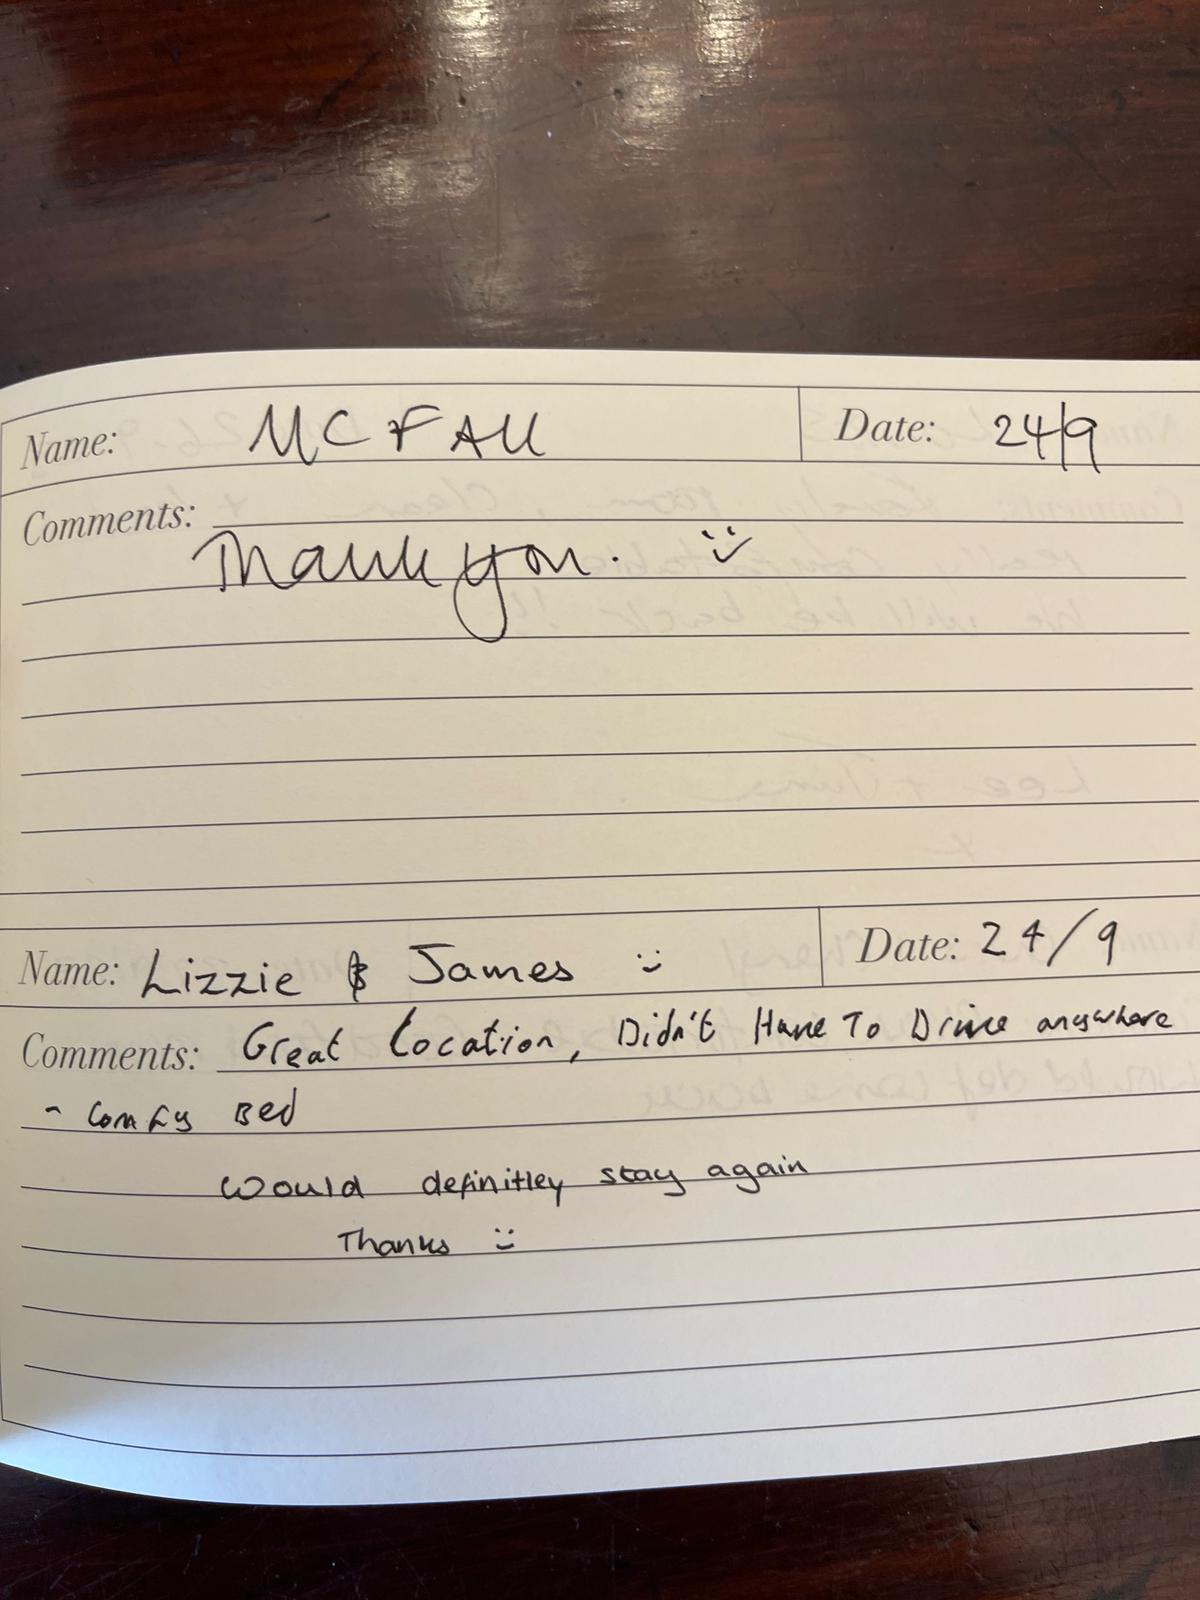 Name: MCFALL Date: 24/9
Comments:
Thank you. :)
Name: Lizzie & James :) Date: 24/9
Comments: Great Location, Didn't Have To Drive anywhere
- Comfy Bed
Would definitley stay again
Thanks :)